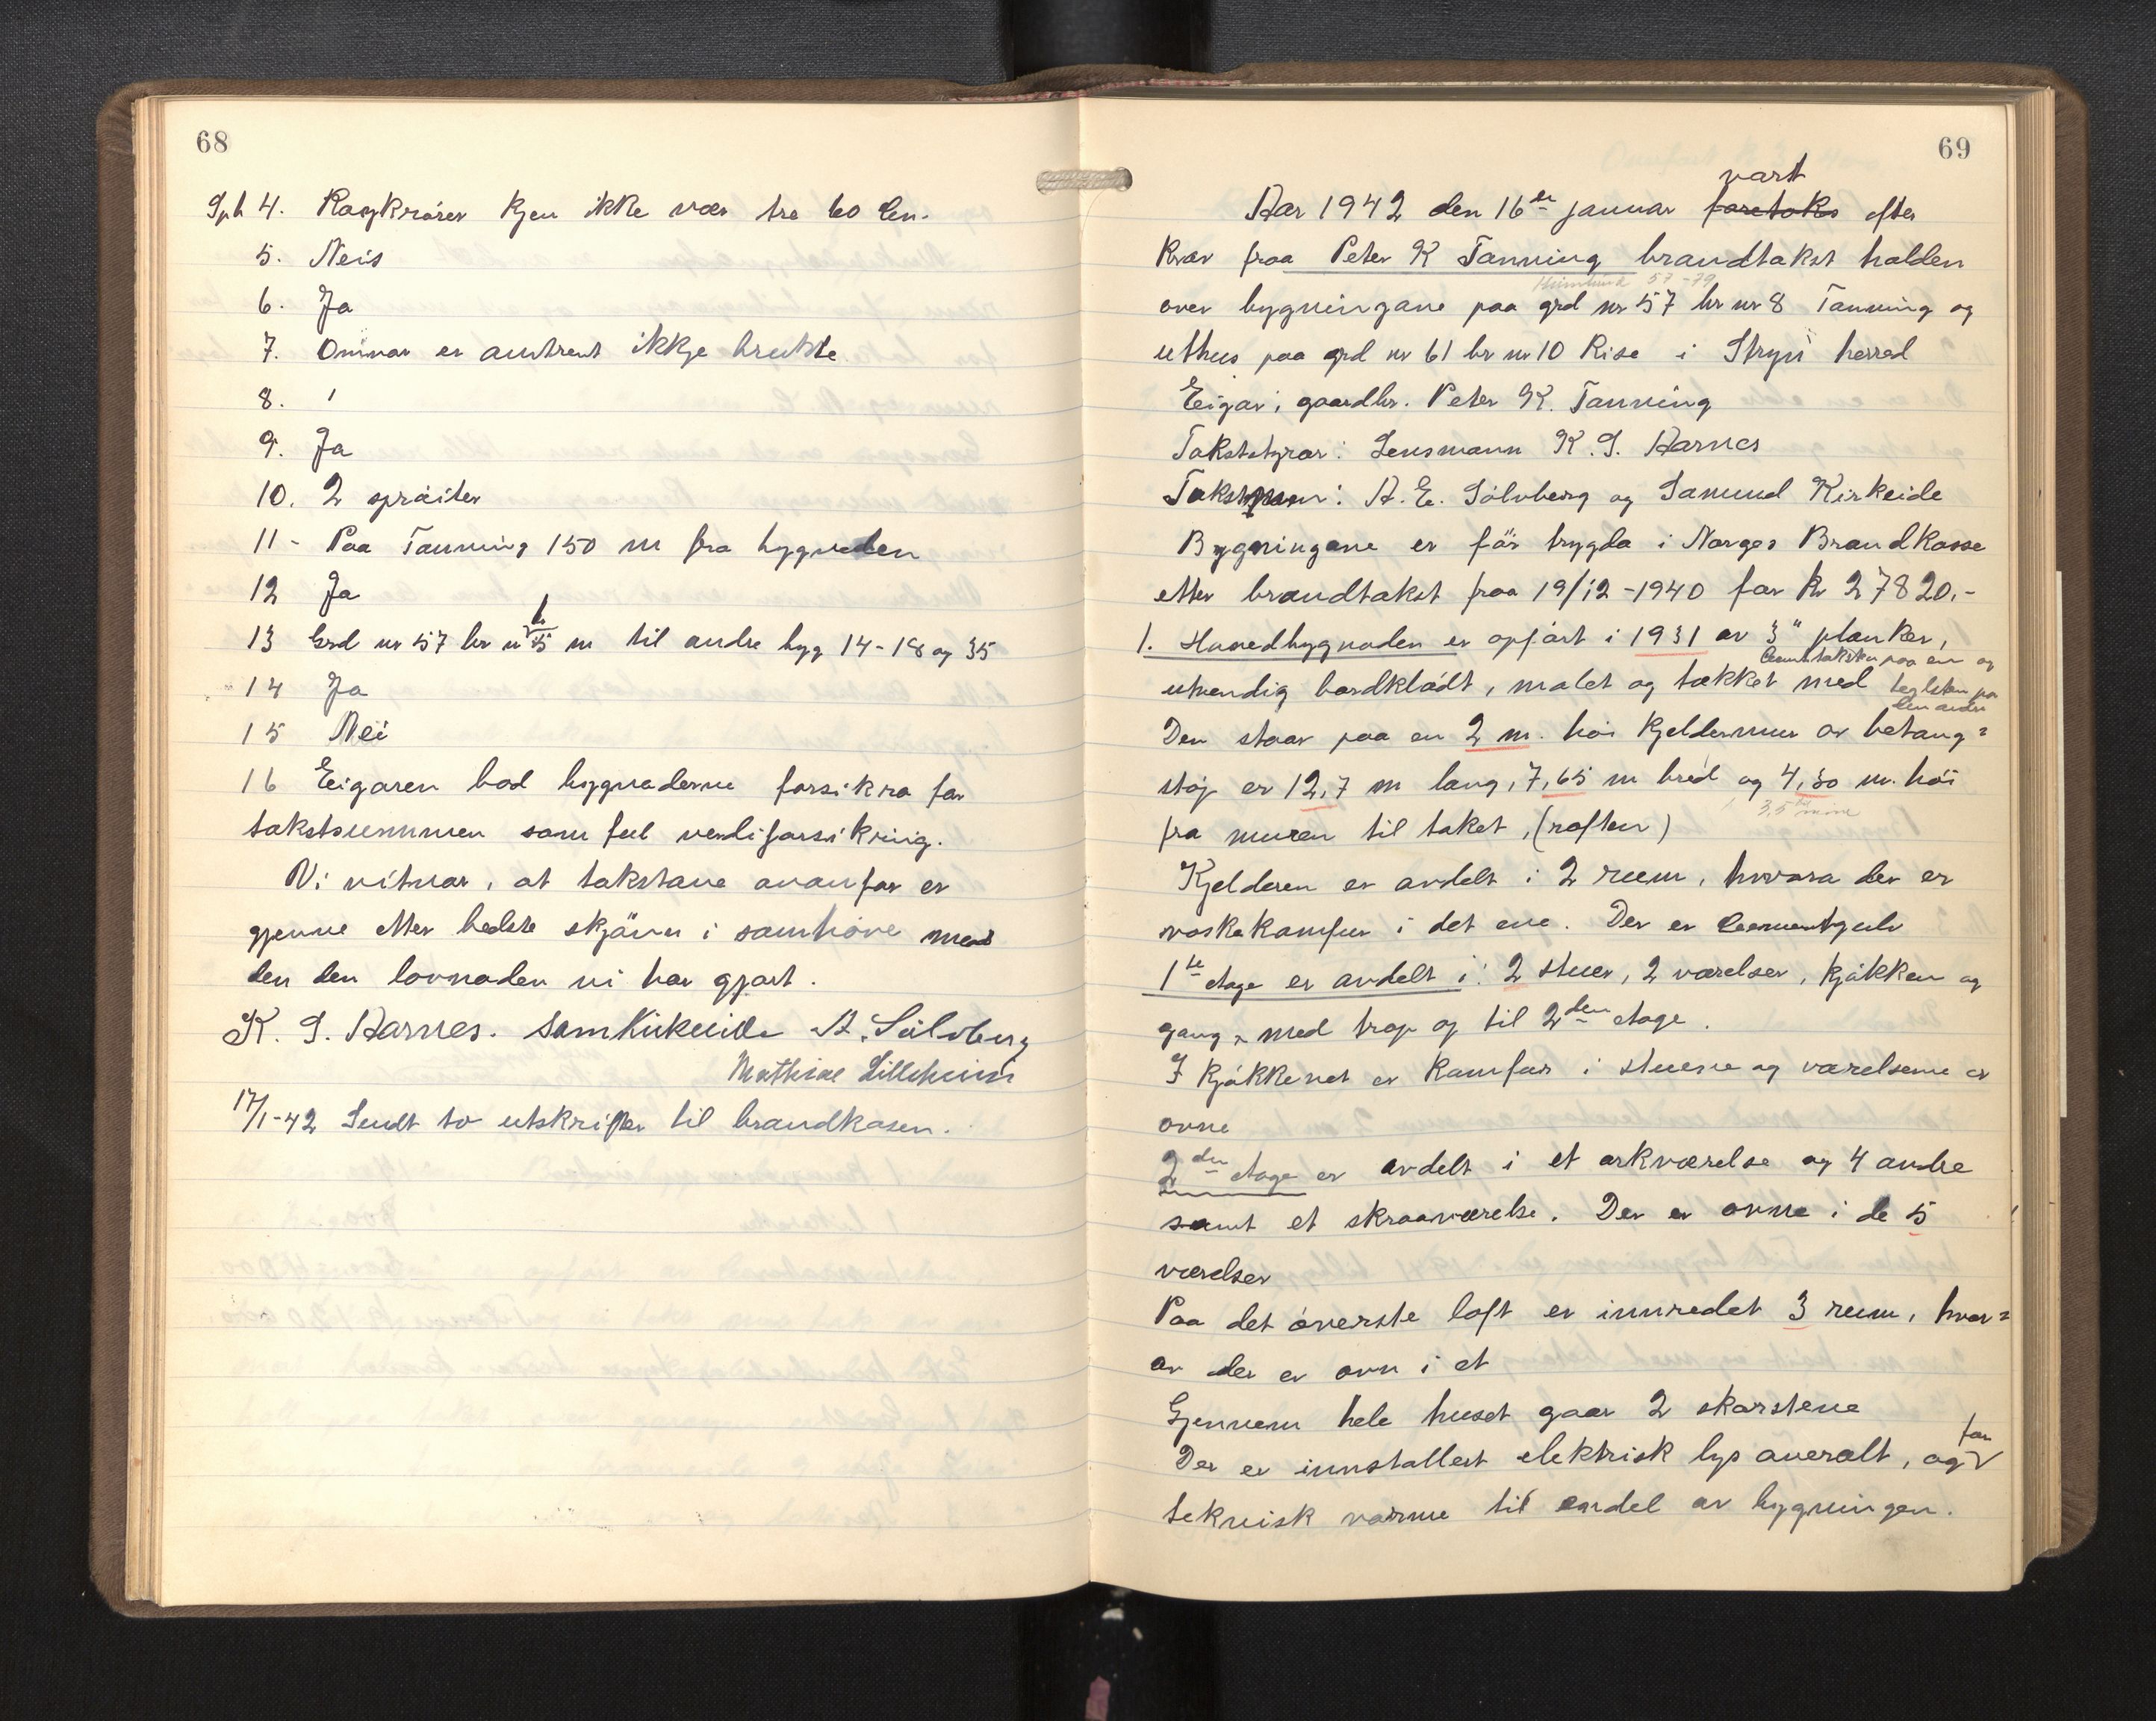 68
Sph 4. Røykrører kjem ikke nær tre 60 cm.
5. Neis
6. Ja
7. Omnar er amtrent ikkje brukte
8. '
9. Ja
10. 2 spräiter
11- Paa Tanning 150 m fra bygnaden
12 Ja
13 Grd nr 57 br nr 5 m til andre byg 14-18 og 35
14 Ja
15 Nei
16 Eigaren bad bygnaderne forsikra for
takstsummen som full verdiforsikring.
Vi vitnar, at takstane ovanfor er
gjenne etter bedste skjönn i samhöve med
den den lovnaden vi har gjort.
K. S. Aarnes. Sam Kirkeide A. Sølvberg
Mathias Lilleheim
17/1-42 Sendt to utskrifter til brandkasen.
69
vart
Aar 1942 den 16de januar foretoks efter
krav fraa Peter K Tanning brandtakst halden
57-79
over bygningane paa grd nr 57 br nr 8 Tanning og
uthus paa grd nr 61 br nr 10 Rise i Stryn herred
Eigar, gaardbr. Peter K. Tanning
Takststyrar: Lensmann K. S. Aarnes
Takstmenn: A. E. Sølvberg og Samund Kirkeide
Bygningane er för trygda i Norges Brandkasse
etter brandtakst fraa 19/12-1940 for kr 27820,-
1. Hovedbygnaden er opført i 1931 av 3" planker,
Cementtaksten paa en og
utvendig bordklädt, malet og tækket med teglsten paa
den andre
Den staar paa en 2 m. høi kjeldermur av betong=
støp er 12,7 m lang, 7,65 m bred og 4,30 m. høi
3,5
fra muren til taket, (roften)
Kjelderen er avdelt i 2 rum, hvorav der er
vaskekamfur i det ene. Der er Cementgulv
1ste etage er avdelt i: 2 stuer, 2 værelser, kjøkken og
gang, med trap op til 2den etage.
I kjøkkenet er kamfur i stuene og værelsene er
ovne
2den etage er avdelt i et arkværelse og 4 andre
samt et skraaværelse. Der er ovne i de 5
værelser
Paa det øverste loft er innredet 3 rum, hvor=
av der er ovn i et
Gjennem hele huset gaar 2 skorstene
for
Der er innstallert elektrisk lys averalt, og
teknisk varme til endel av bygningen.